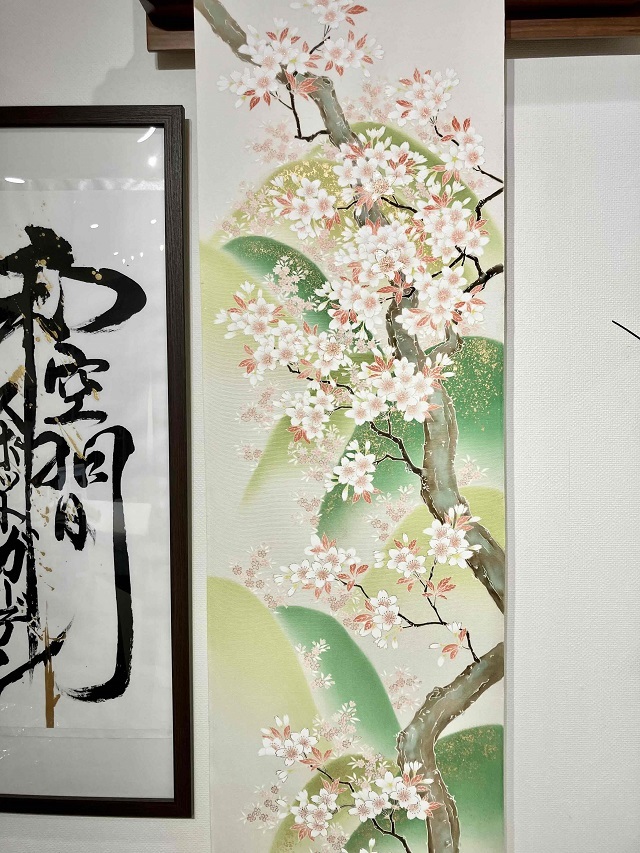 空間
スポットガーデン